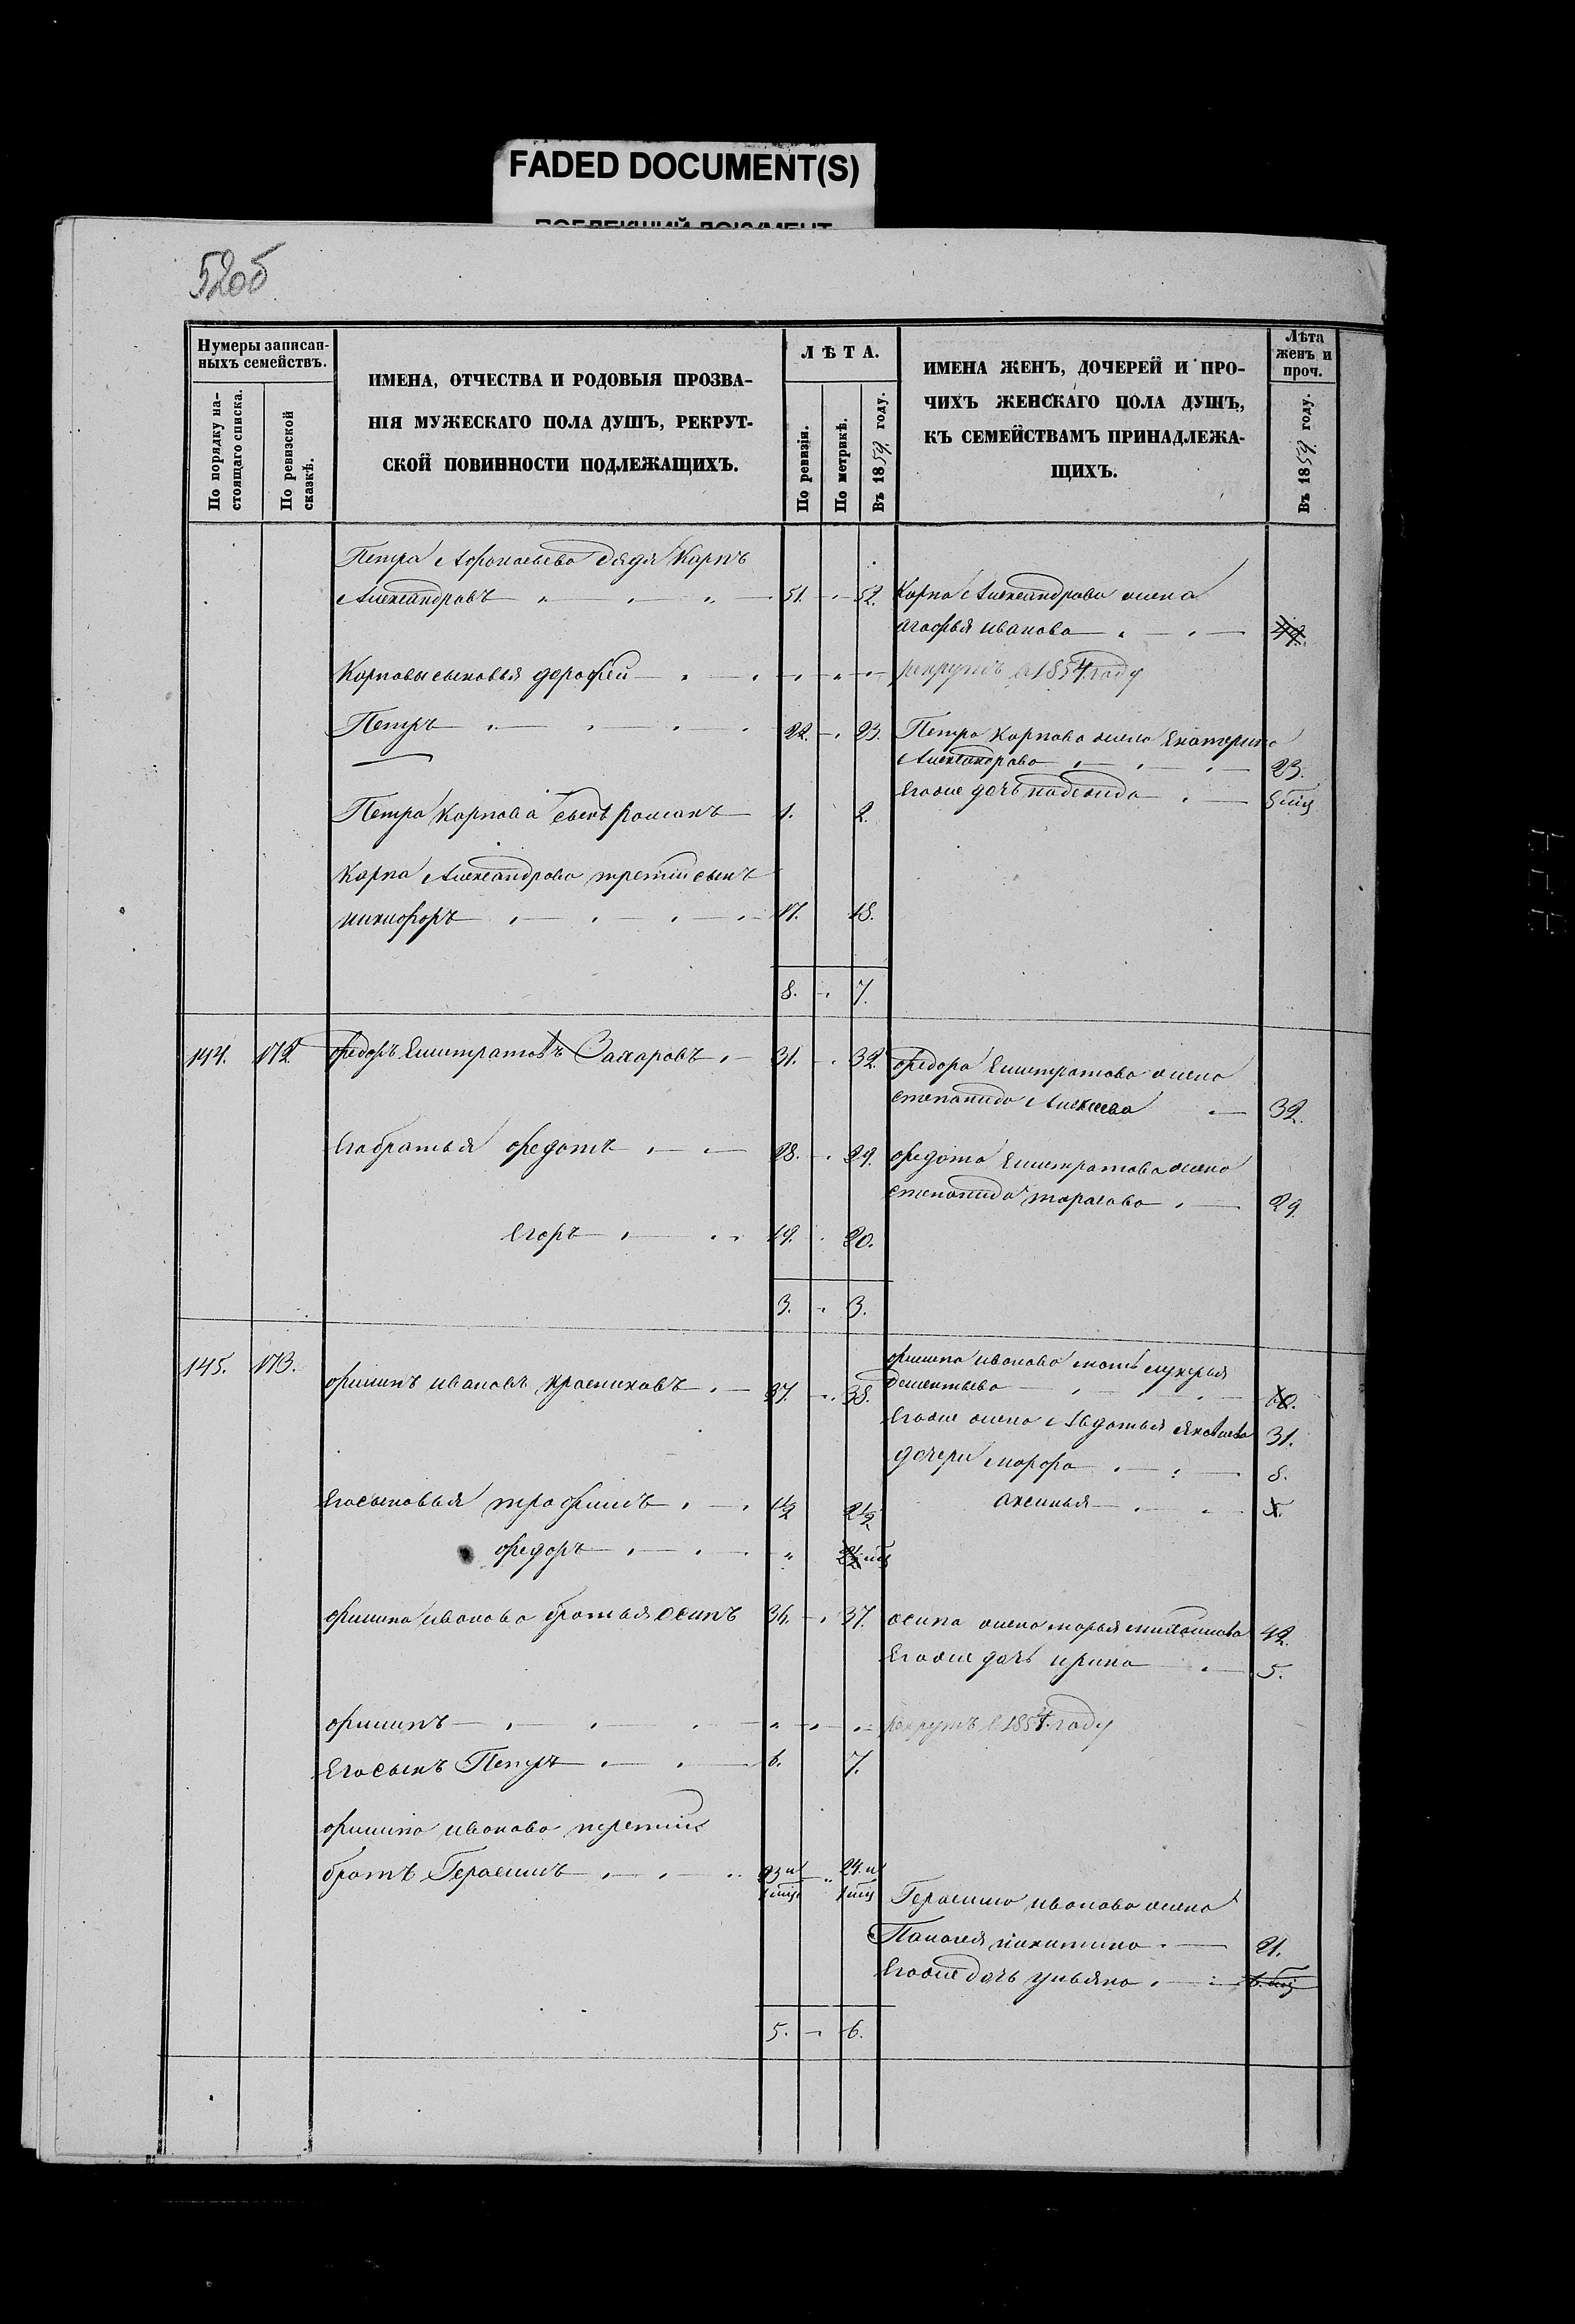 FADED DOCUMENT(S)
52об
Нумеры записан-
ныхъ семействъ.
По порядку на-
стоящаго списка.
По ревизской
сказкѣ.
ИМЕНА, ОТЧЕСТВА И РОДОВЫЯ ПРОЗВА-
НІЯ МУЖЕСКАГО ПОЛА ДУШЪ, РЕКРУТ-
СКОЙ ПОВИННОСТИ ПОДЛЕЖАЩИХЪ.
ЛѢТА.
По ревизіи.
По метрикѣ.
Въ 1859 году.
ИМЕНА ЖЕНЪ, ДОЧЕРЕЙ И ПРО-
ЧИХЪ ЖЕНСКАГО ПОЛА ДУШЪ,
КЪ СЕМЕЙСТВАМЪ ПРИНАДЛЕЖА-
ЩИХЪ.
Лѣта
женъ и
проч.
Въ 1859 году.
Петра Афонасьева дядя Карпъ
Александровъ 51. 52. Карпа Александрова жена
агафья иванова
Карповы сыновья дорофей рекрутъ в 1854 году
Петръ 22. 23. Петра Карпова жена Екатерина
Александрова 23.
Егоже дочь надежда
Петра Карпова сынъ романъ 1. 2.
Карпа Александрова третій сынъ
никифоръ 17. 18.
8. 7.
144. 172. федоръ Елистратовъ Захаровъ 31. 32. федора Елистратова жена
степанида Алексеева 32.
Его братья федотъ 28. 29. федота Елистратова жена
степанида тарасова 29.
Егоръ 19. 20.
3. 3.
145. 173. филипа иванова мать лукерья
дементьева
филипъ ивановъ красиковъ 37. 38.
Егоже жена Авдотья яковлева 31.
дочери марфа 8.
Его сыновья трофимъ 1½ 2½ аксинья
федоръ
филипа иванова братья осипъ 36. 37. осипа жена марья михаилова 42.
Егоже дочь ирина 5.
филипъ рекрутъ в 1854 году
Его сынъ Петръ 6. 7.
филипа иванова третій
братъ Герасимъ
Герасима иванова жена
Палагея никитина 21.
Егоже дочь ульяна
5. 6.